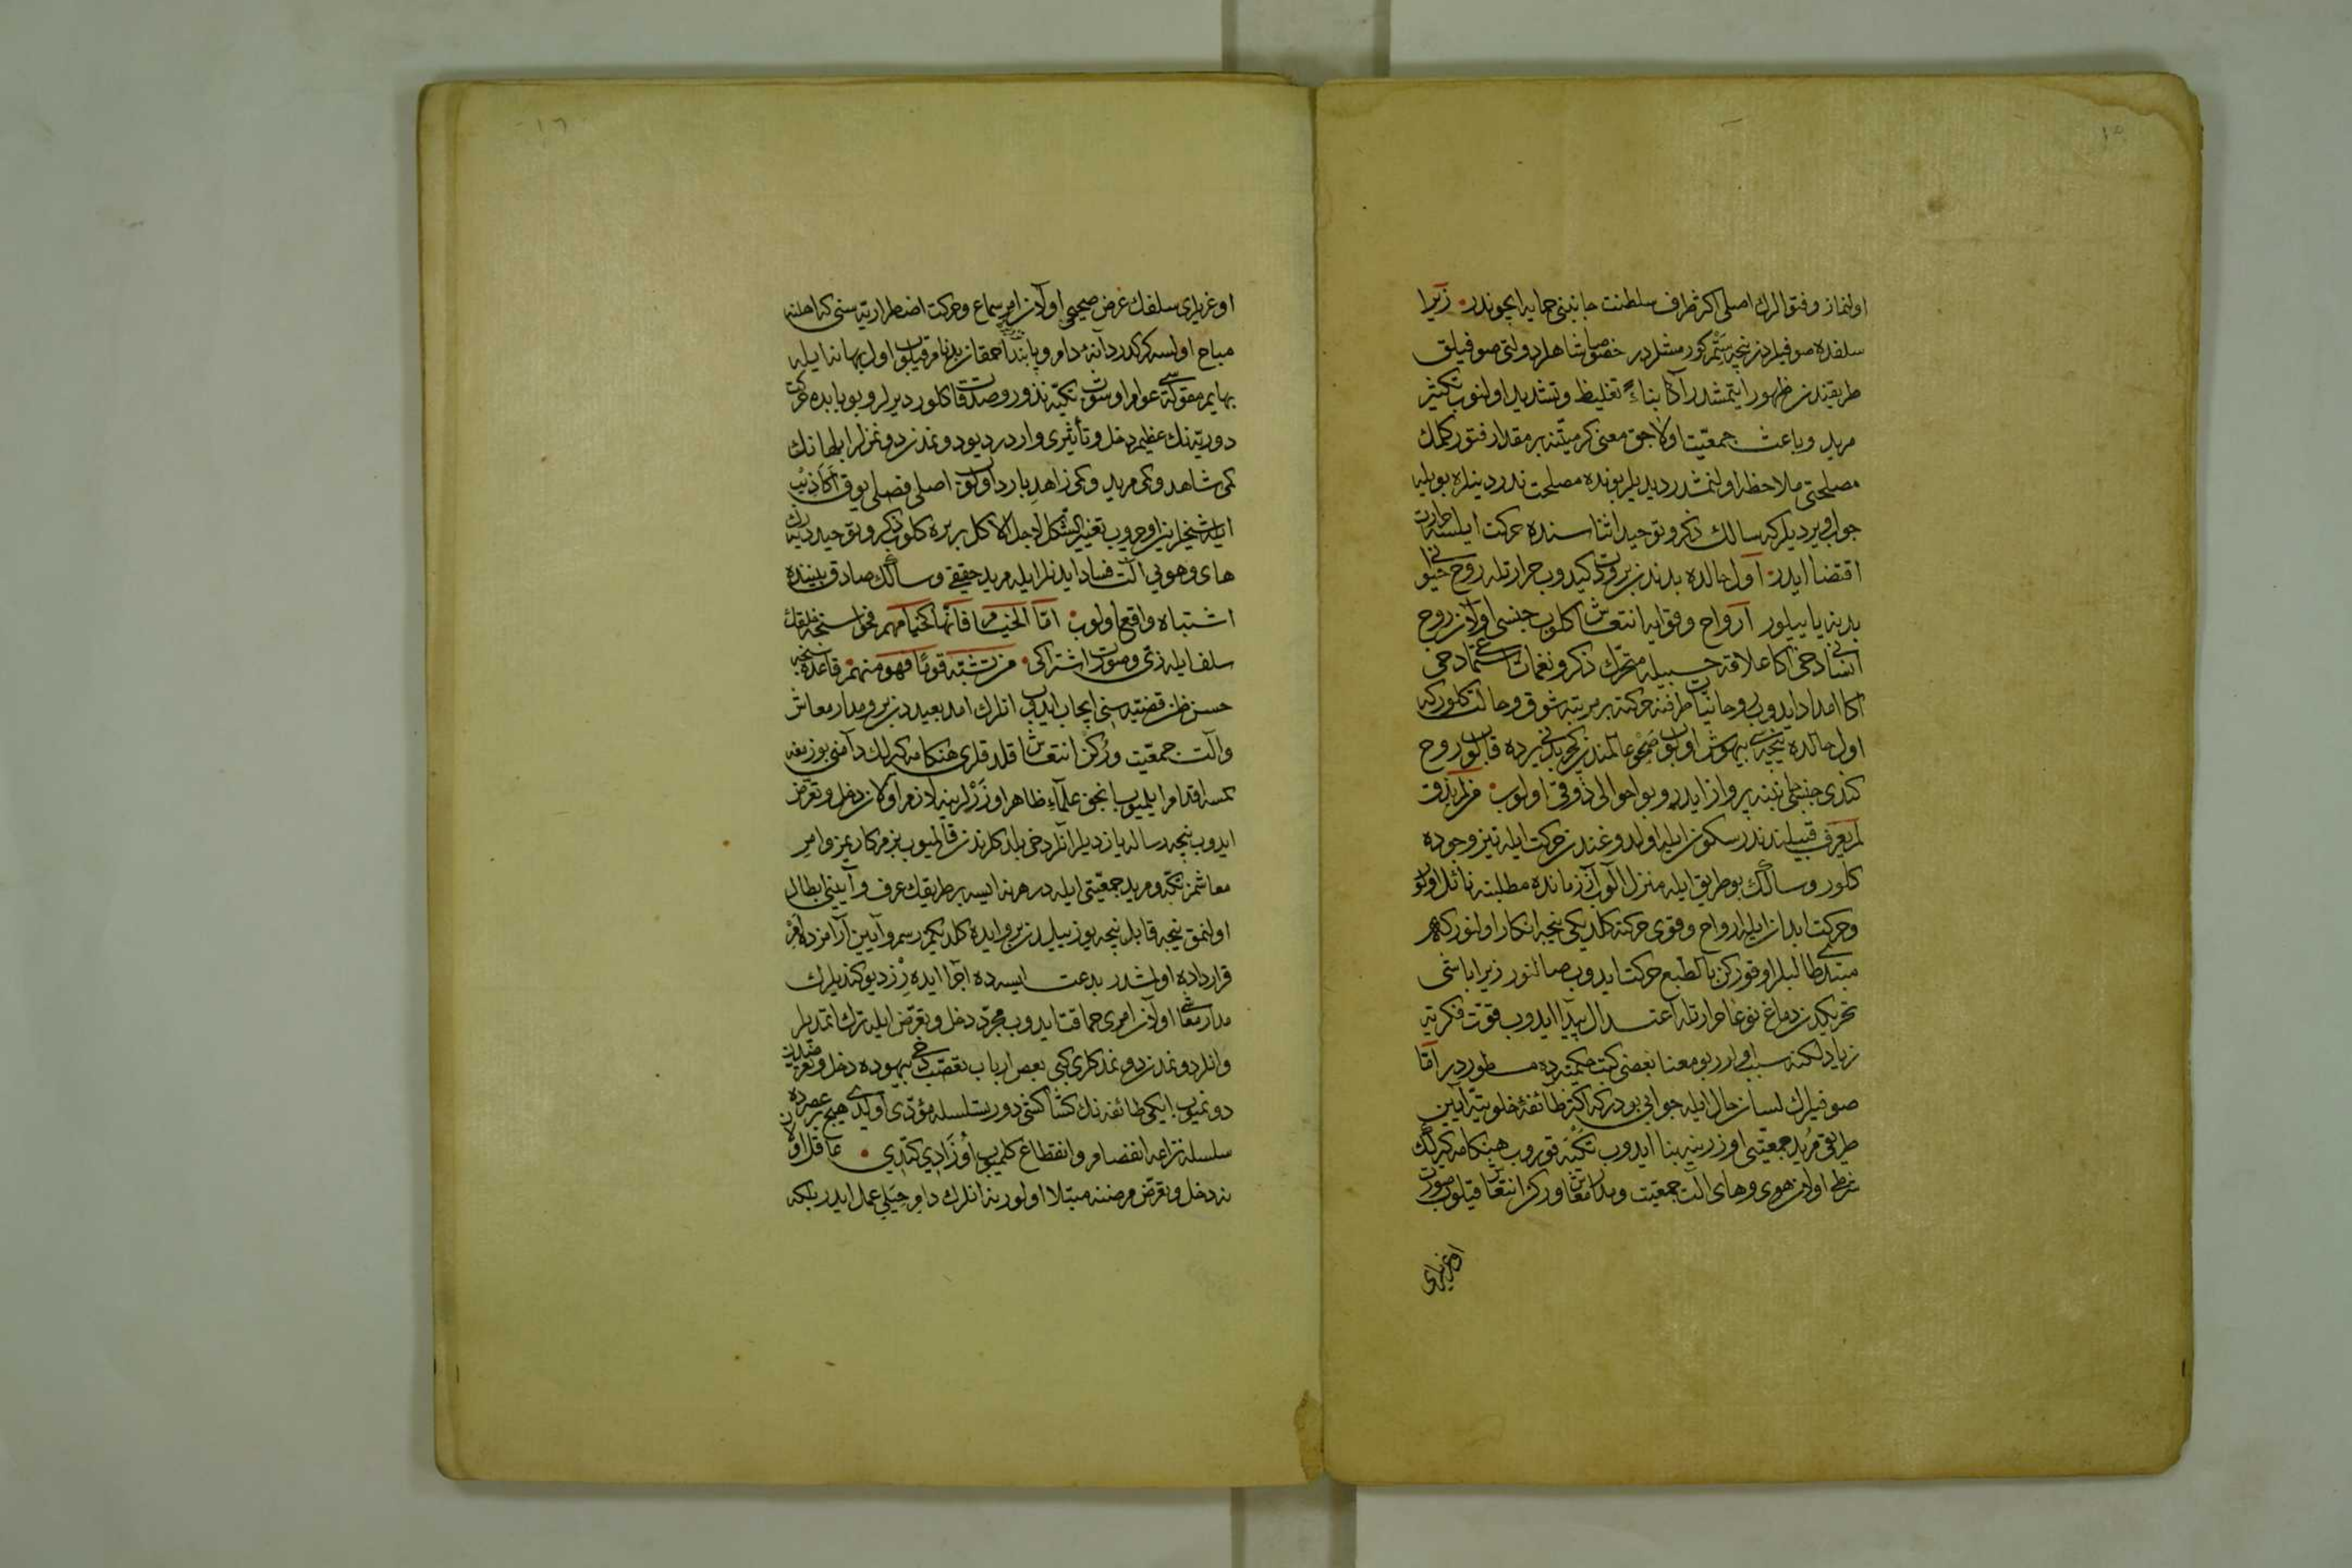 ١٥
اولنماز و فتوالرك اصلى اكثر طرف سلطنت جانبنى حمايه ايچوندر زيرا
سلفده صوفيلردن نيجه ستمر كورمشلردر خصوصا شاهلر دولتى صوفيلق
طريقندن ظهور ايتمشدر اكا بناءً تغليظ و تشديد اولنوب تكثير
مريد و باعث جمعيت اولاجق معنى كرميتنه بر مقدار فتور كلمك
مصلحتى ملاحظه اولنمشدر ديديلر بونده مصلحت ندر دينلره بويله
جواب ويرديلر كه سالك ذكر و توحيد اثناسنده حركت ايلسه حرارت
اقتضا ايدر اول حالده بدندن برودت كيدوب حرارتله روح حيوانى
بدنه ياييلور ارواح و قوايه انتعاش كلوب جنسى اولان روح
انسانى دخى اكا علاقه سى حسبيله متحرك ذكر و نغمات استماعى دخى
اكا امداد ايدوب روحانيات طرفنه حركته بر مرتبه شوق و حالت كلور كه
اول حالده نيجه سى بيهوش اولوب صحو عالمندن كچوب بدنى يرده قالوب روح
كندى جنسى طرفنه پرواز ايدر و بو احوالى ذوقى اولوب من لم يذق
لم يعرف قبيلندندر سكون ايله اولدوغندن حركت ايله تيز وجوده
كلور و سالك بو طريق ايله منزل آلوب آز زمانده مطلبنه نائل اولور
و حركت ابدان ايله ارواح و قوى حركته كلديكى نيجه انكار اولنور كه
مبتدى طالبلر اوقوركن بالطبع حركت ايدوب صالنور زيرا باشى
تحريكدن دماغ نوعا حرارتله اعتدال پيدا ايدوب قوت فكريه
زياده لكنه سبب اولور بو معنا بعضى كتب حكميه ده مسطوردر اما
صوفيلرك لسان حال ايله جوابى بودر كه اكثر طائفهٔ خلوتيه آيين
طريقى مريد جمعيتى اوزرينه بنا ايدوب تكيه قوروب هنكامه كيرلك
شرطى اولان هوى و هاى آلت جمعيت و مدار معاش و ركن انتعاش قيلوب صورت
اوغريلرى
١٦
اوغريلرى سلفك غرض صحيحى اولان امر سماع و حركت اضطراريه سنى كه اهلنه
مباح اولسه كركدر دانهٔ دام و پابند احمقان بدنام قيلوب اول بهانه ايله
بهايم مقوله سى عوام اوشوب تكيه نذور و صدقات كلور ديرلر و بو بابده حركت
دوريه نك عظيم دخل و تأثيرى واردر ديو دونمدن دونمزلر ابلهانك
كمى شاهد و كمى مريد و كمى زاهد بارد اولوب اصلى فصلى يوق اكاذيب
هاى و هويى آلت فساد ايدنلر ايله مريد حقيقى و سالك صادق بيننده
اشتباه واقع اولوب اما الخيام فانها كخيامهم فحواسنجه خلقك
سلف ايله زى و صورت اشتراكى من تشبه قوما فهو منهم قاعده سنجه
حسن ظن قضيه سنى ايجاب ايدوب انلرك امد بعيددنبرو مدار معاش
و آلت جمعيت و ركن انتعاش قلدقلرى هنكامه كيرلك دامنى بوزمغه
كمسه اقدام ايلميوب انجق علماء ظاهر اوزرلرينه لازم اولان دخل و تعرض
ايدوب نيجه رساله يازديلر انلر دخى بلدكلرندن قالميوب بزم كاريمز و امر
معاشمز تكيه و مريد جمعيتى ايله در هر نه ايسه بر طريقك عرف و آيينى ابطال
اولنمق نيجه قابل نيجه يوز ييلدنبرو ايده كلديكمز رسم و آيين آرامزده امر
قرارداده اولمشدر بدعت ايسه ده اجرا ايده رز ديو كنديلرك
مدار معاشى اولان امرى حماقت ايدوب مجرد دخل و تعرض ايله ترك ايتمديلر
و انلر دونمدن دونمدكلرى كبى بعض ارباب تعصب دخى بيهوده دخل و تعرضدن
دونميوب ايكى طائفه نك كشاكشى دور و تسلسله مؤدى اولدى هيچ بر عصرده
سلسلهٔ نزاعه انفصام و انقطاع كلميوب اوزادى كتدى عاقل اولان
نه دخل و تعرض مرضنه مبتلا اولور نه انلرك دام حيلى عمل ايدر بلكه